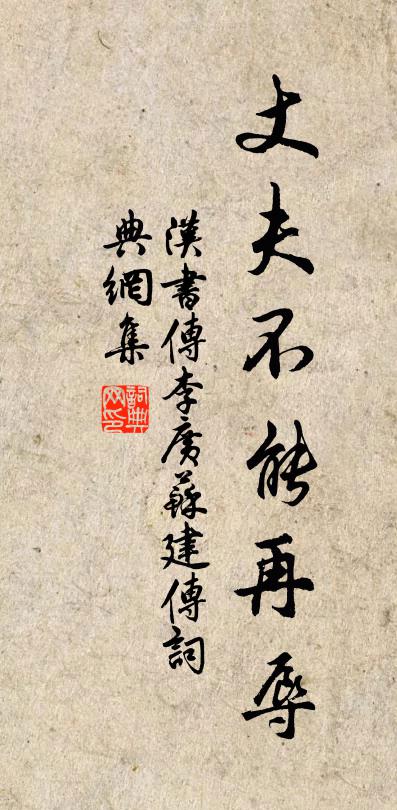 丈夫不能再辱
漢書傳李廣蘇建傳詞
典網集
詞典
网印